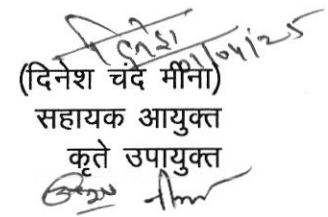 दिनेश
01/04/25
(दिनेश चंद मीना)
सहायक आयुक्त
कृते उपायुक्त